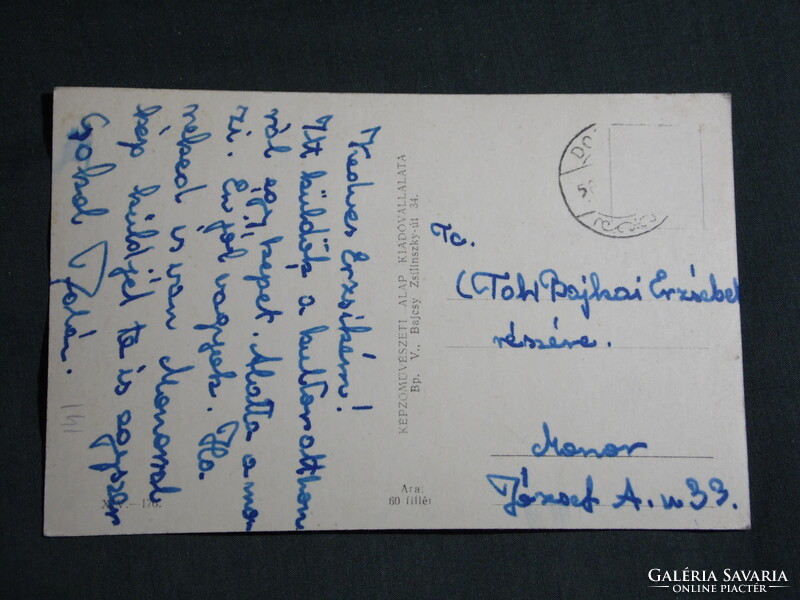 Kedves Erzsikém!
Itt küldök a kultúrotthon
ról egy képet. Alatta a mo
zi. Én jól vagyok. Ha
neked is van Monorral
kép küldjél te is egyszer
Csókol Zoltán.
141
KÉPZŐMŰVÉSZETI ALAP KIADÓVÁLLALATA
Bp. V., Bajcsy Zsilinszky-út 34.
Ára:
60 fillér
(Tóth) Bajkai Erzsébet
részére.
Monor
József A. u 33.
GALÉRIA SAVARIA
ONLINE PIACTÉR